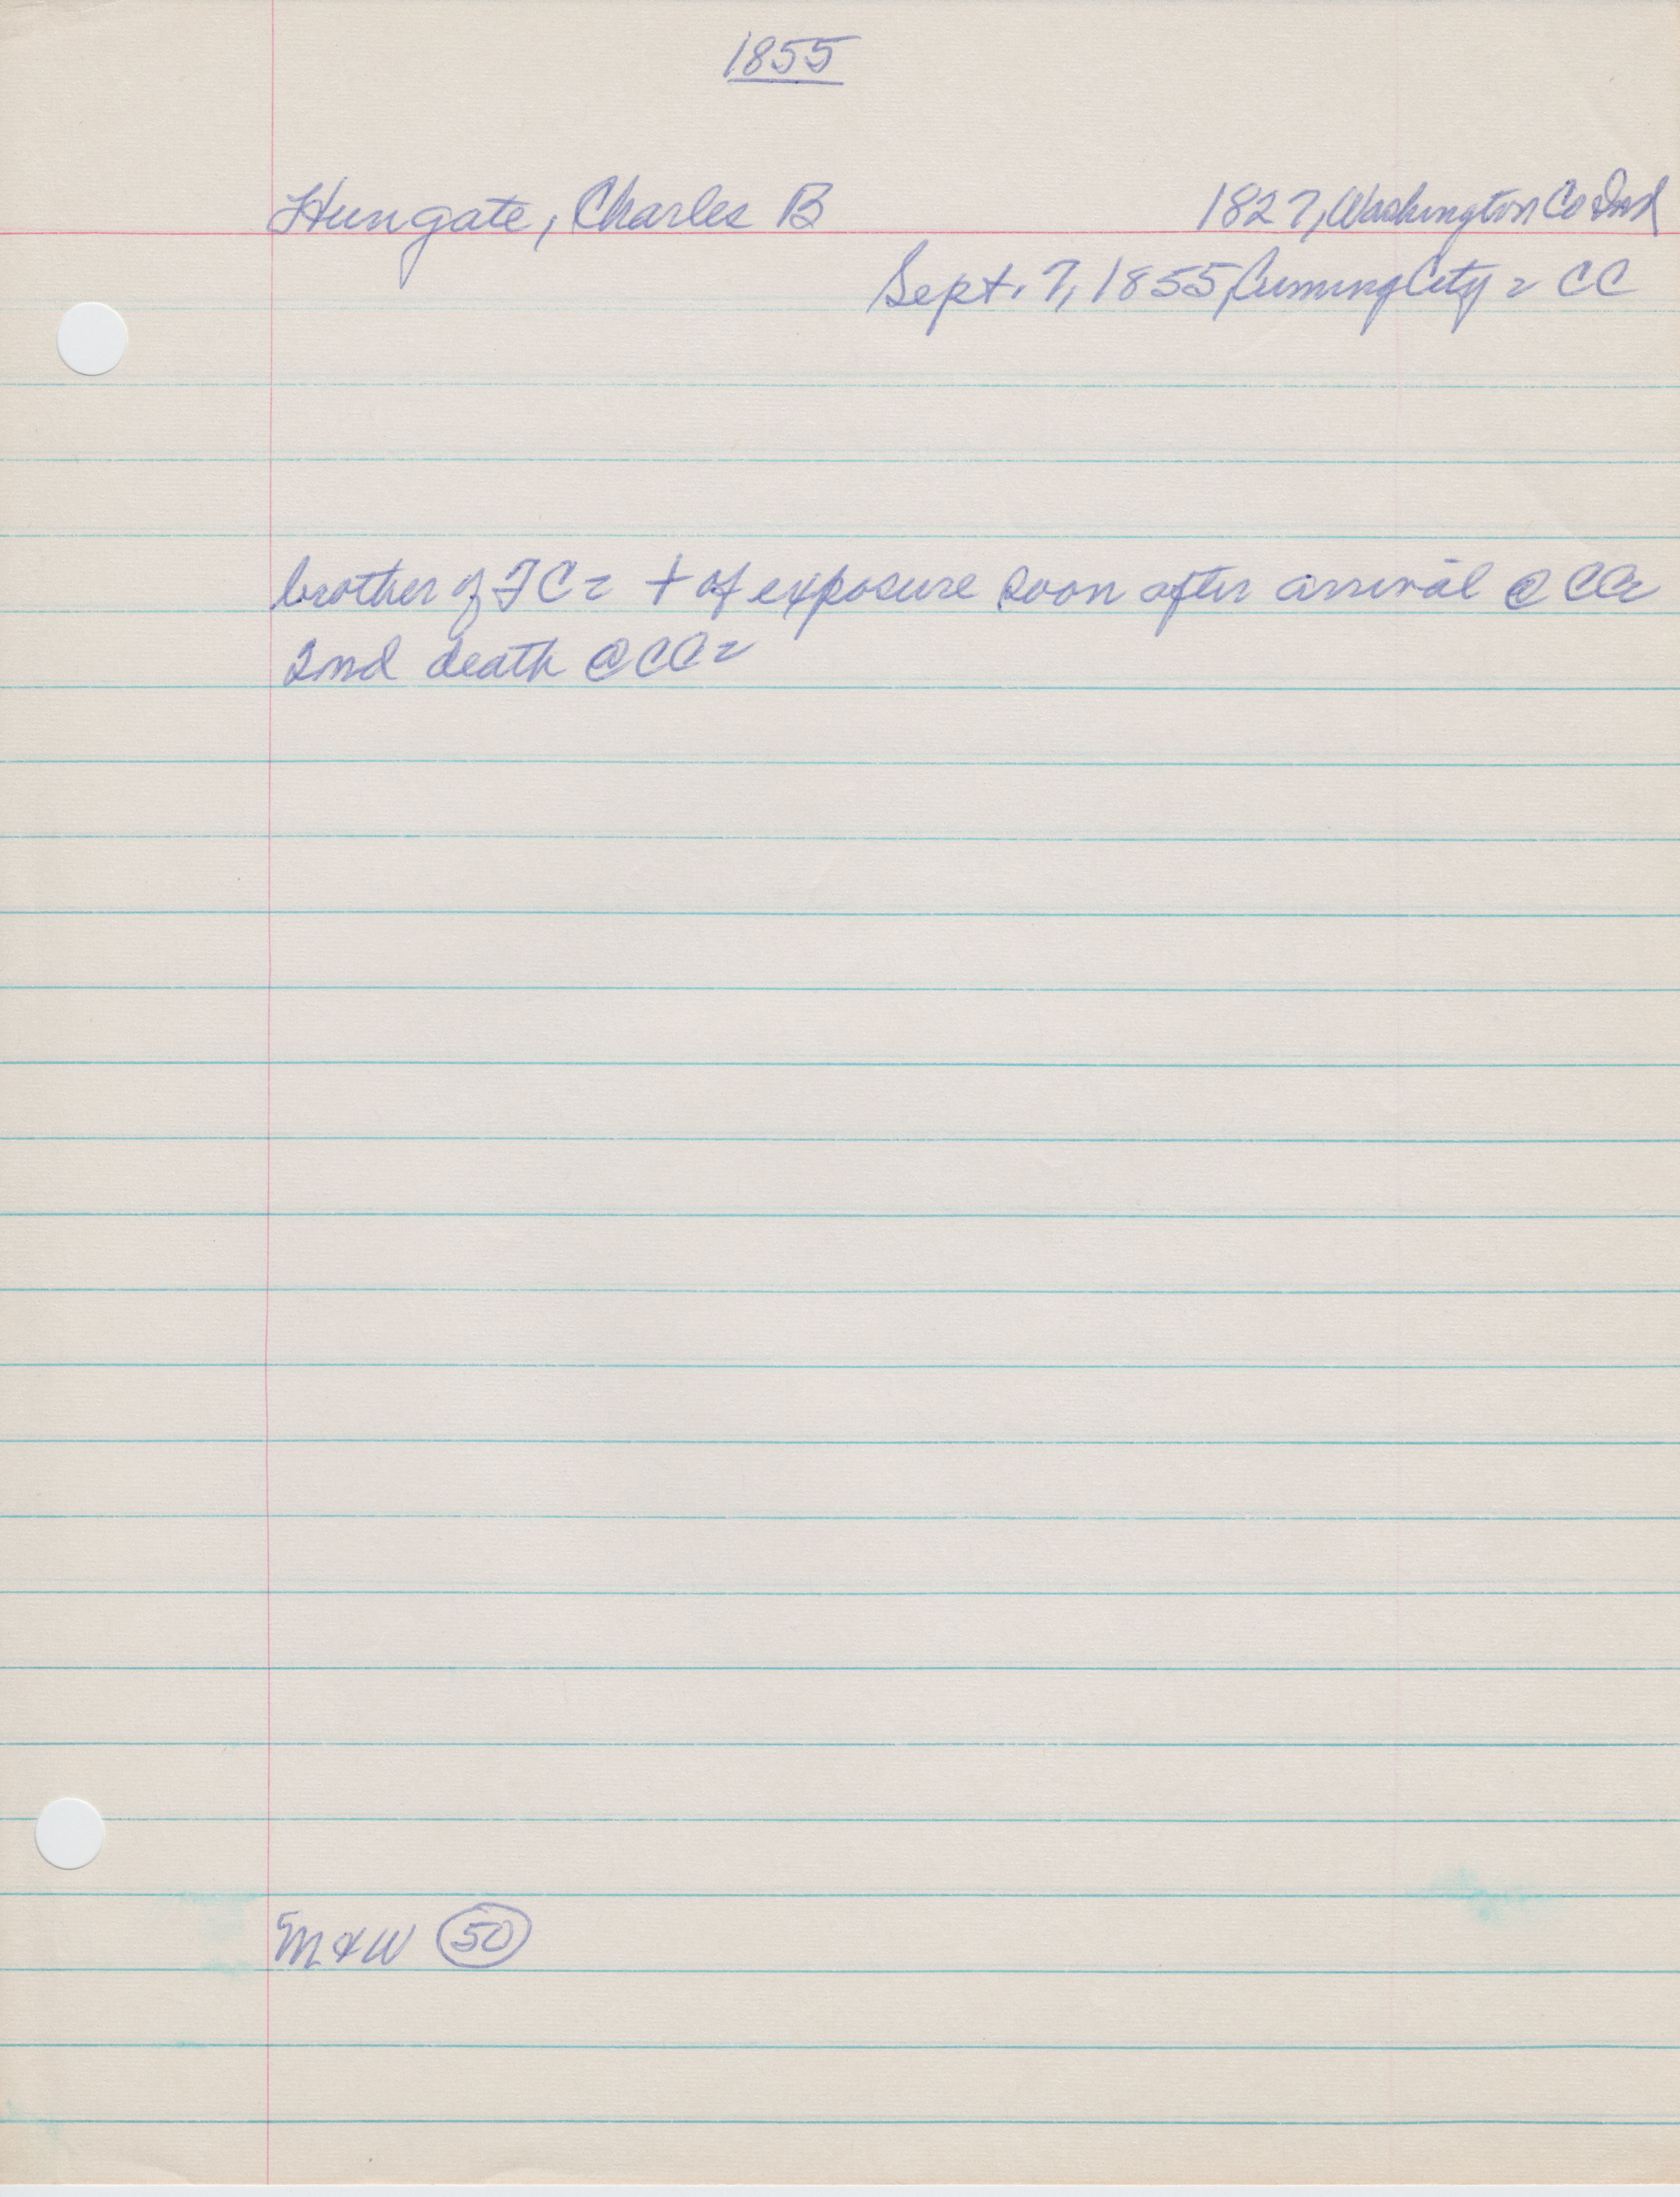 1855
Hungate, Charles B 1827, Washington Co Ind
Sept. 7, 1855, Cuming City = CC
brother of TC = + of exposure soon after arrival @ CC =
2nd death @ CC =
M & W 50